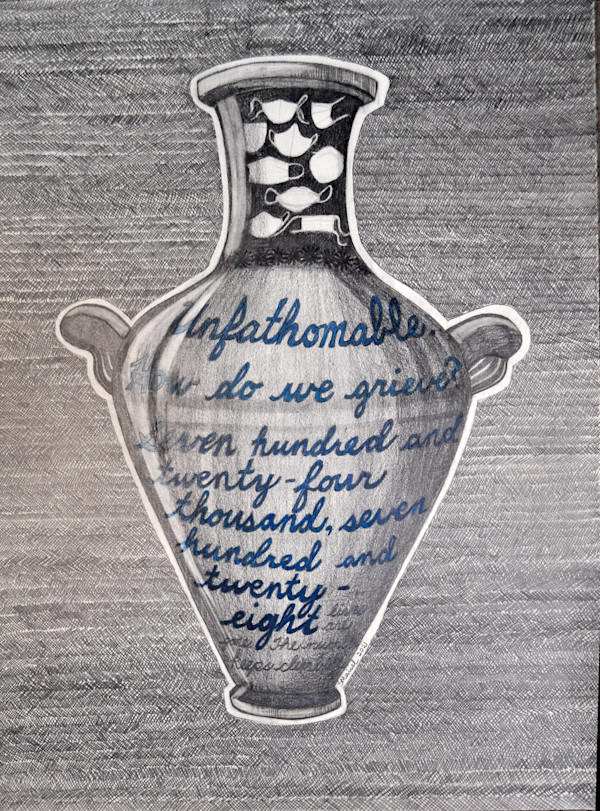 Unfathomable.
How do we grieve?
Seven hundred and
twenty-four
thousand, seven
hundred and
twenty-
eight lives
are
The num
keeps climbing